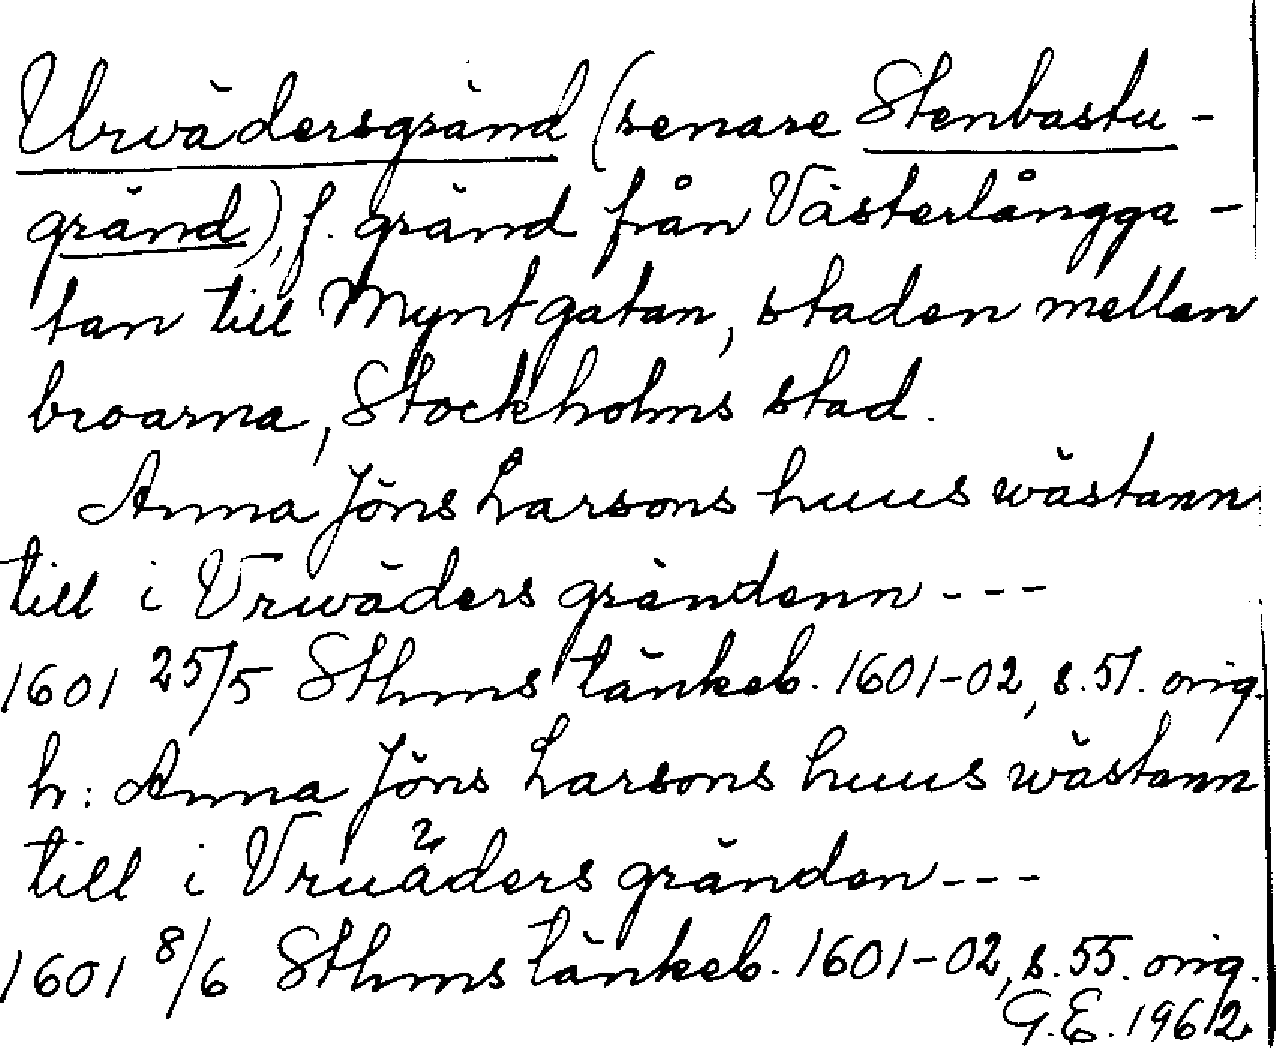 Urvädersgränd (senare Stenbastu-
gränd), f. gränd från Västerlångga-
tan till Myntgatan, staden mellan
broarna, Stockholms stad.
Anna Jöns Larsons huus wästann
till i Vrwäders grändenn - - -
1601 25/5 Sthms tänkeb. 1601-02, s. 51. orig.
h: Anna Jöns Larsons huus wästann
till i Vruäders gränden - - -
1601 8/6 Sthms tänkeb. 1601-02, s. 55. orig.
G.E. 1962